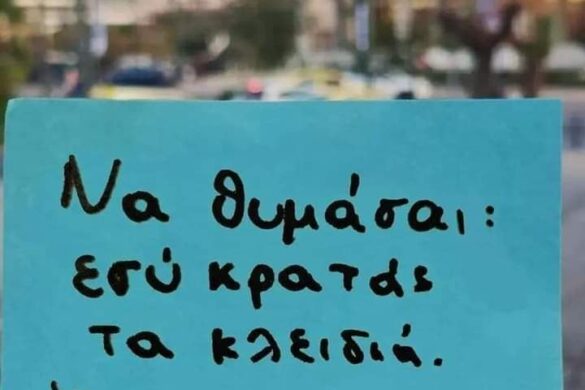 Να θυμάσαι:
εσύ κρατάς
τα κλειδιά.